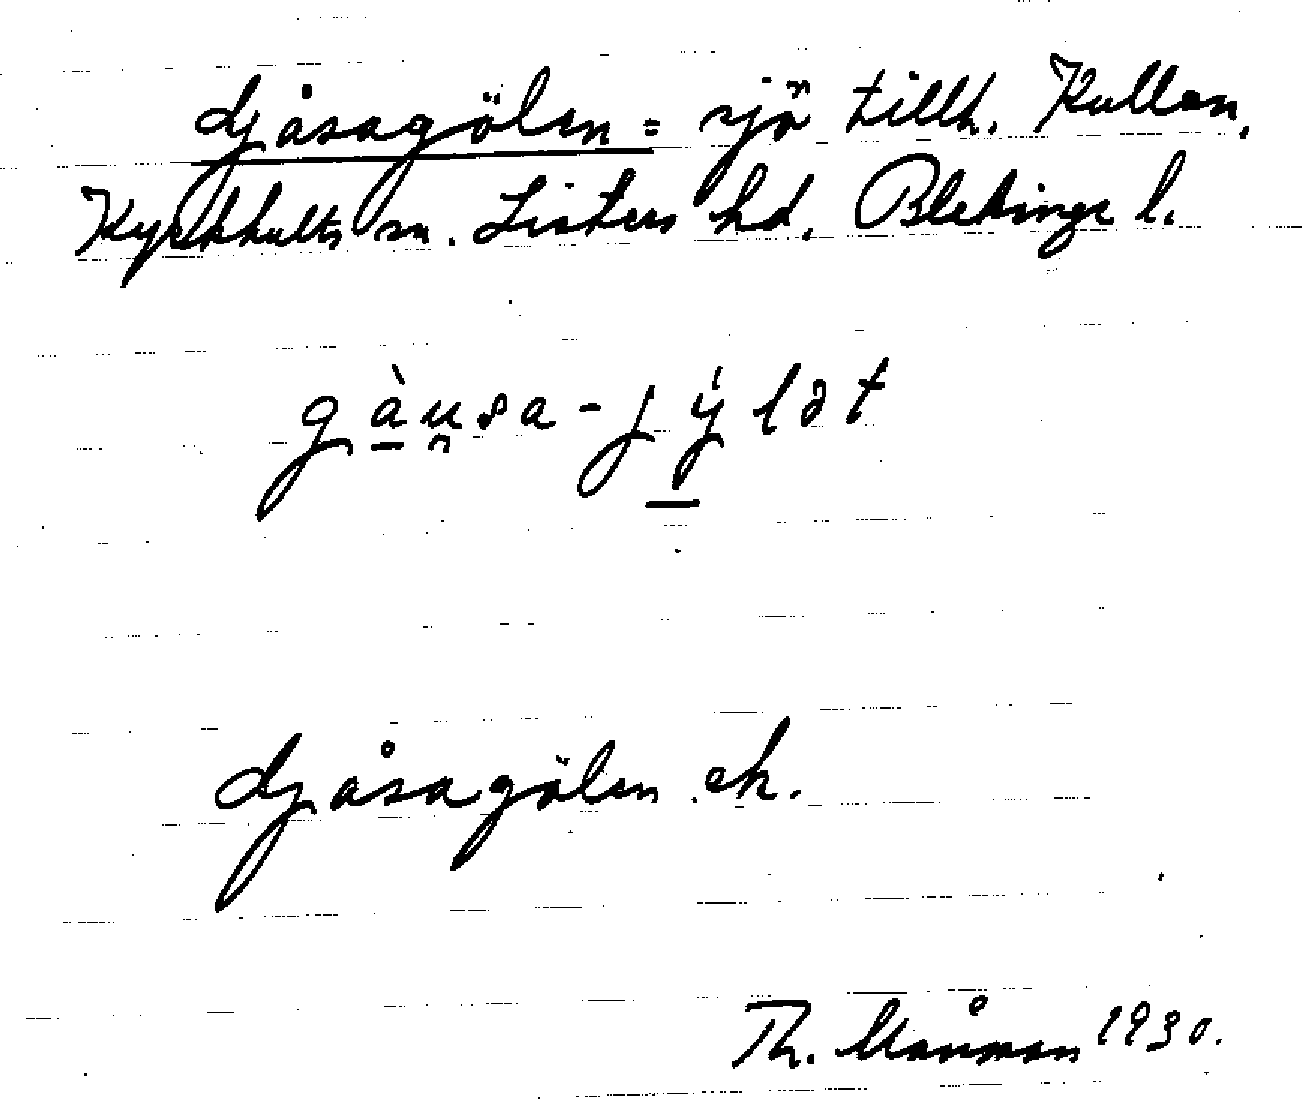 Gåsagölen = sjö tillh. Kullen,
Kyrkhults sn. Listers hd. Blekinge l.
gàu̯sa-jýlət
Gåsagölen ek.
Th. 1930.